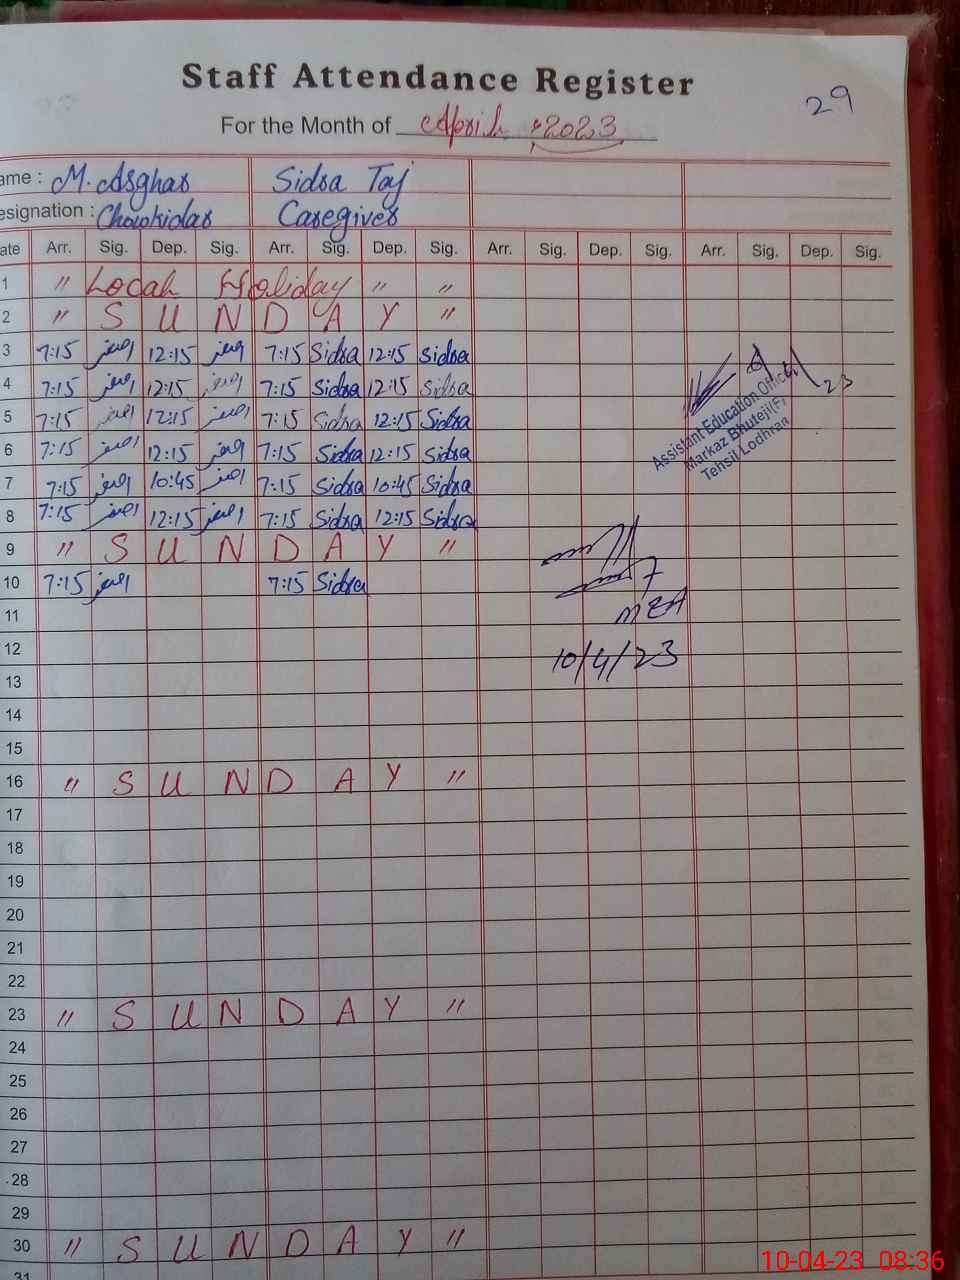 Staff Attendance Register
29
For the Month of April 2023
ame : M. Asghar Sidra Taj
esignation : Chowkidar Caregiver
ate Arr. Sig. Dep. Sig. Arr. Sig. Dep. Sig. Arr. Sig. Dep. Sig. Arr. Sig. Dep. Sig.
1 " Local Holiday " "
2 " S U N D A Y "
3 7:15 اصغر 12:15 اصغر 7:15 Sidra 12:15 Sidra
4 7:15 اصغر 12:15 اصغر 7:15 Sidra 12:15 Sidra
5 7:15 اصغر 12:15 اصغر 7:15 Sidra 12:15 Sidra
6 7:15 اصغر 12:15 اصغر 7:15 Sidra 12:15 Sidra
7 7:15 اصغر 10:45 اصغر 7:15 Sidra 10:45 Sidra
8 7:15 اصغر 12:15 اصغر 7:15 Sidra 12:15 Sidra
Assistant Education Office
Markaz Bhuteji(F)
Tehsil Lodhran
9 " S U N D A Y "
10 7:15 اصغر 7:15 Sidra
MEA
11
12
10/4/23
13
14
15
16 " S U N D A Y "
17
18
19
20
21
22
23 " S U N D A Y "
24
25
26
27
28
29
30 " S U N D A Y "
31
10-04-23 08:36